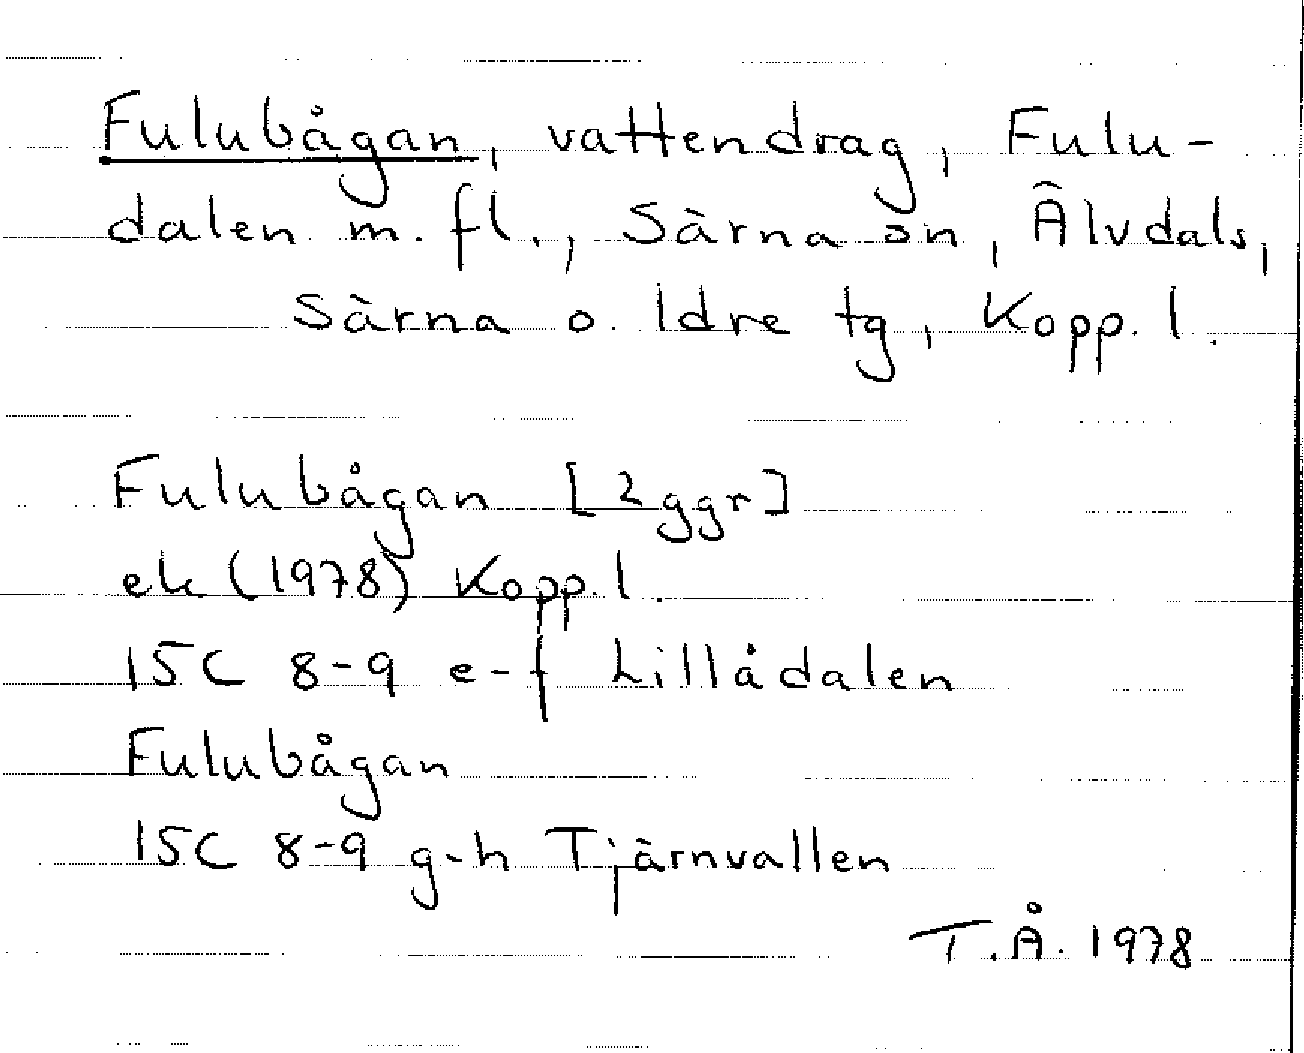 Fulubågan, vattendrag, Fulu-
dalen m. fl., Särna sn, Älvdals,
Särna o. Idre tg, Kopp. l.
Fulubågan [2 ggr]
ek (1978) Kopp. l.
15C 8-9 e-f Lillådalen
Fulubågan
15C 8-9 g-h Tjärnvallen
T.Å. 1978